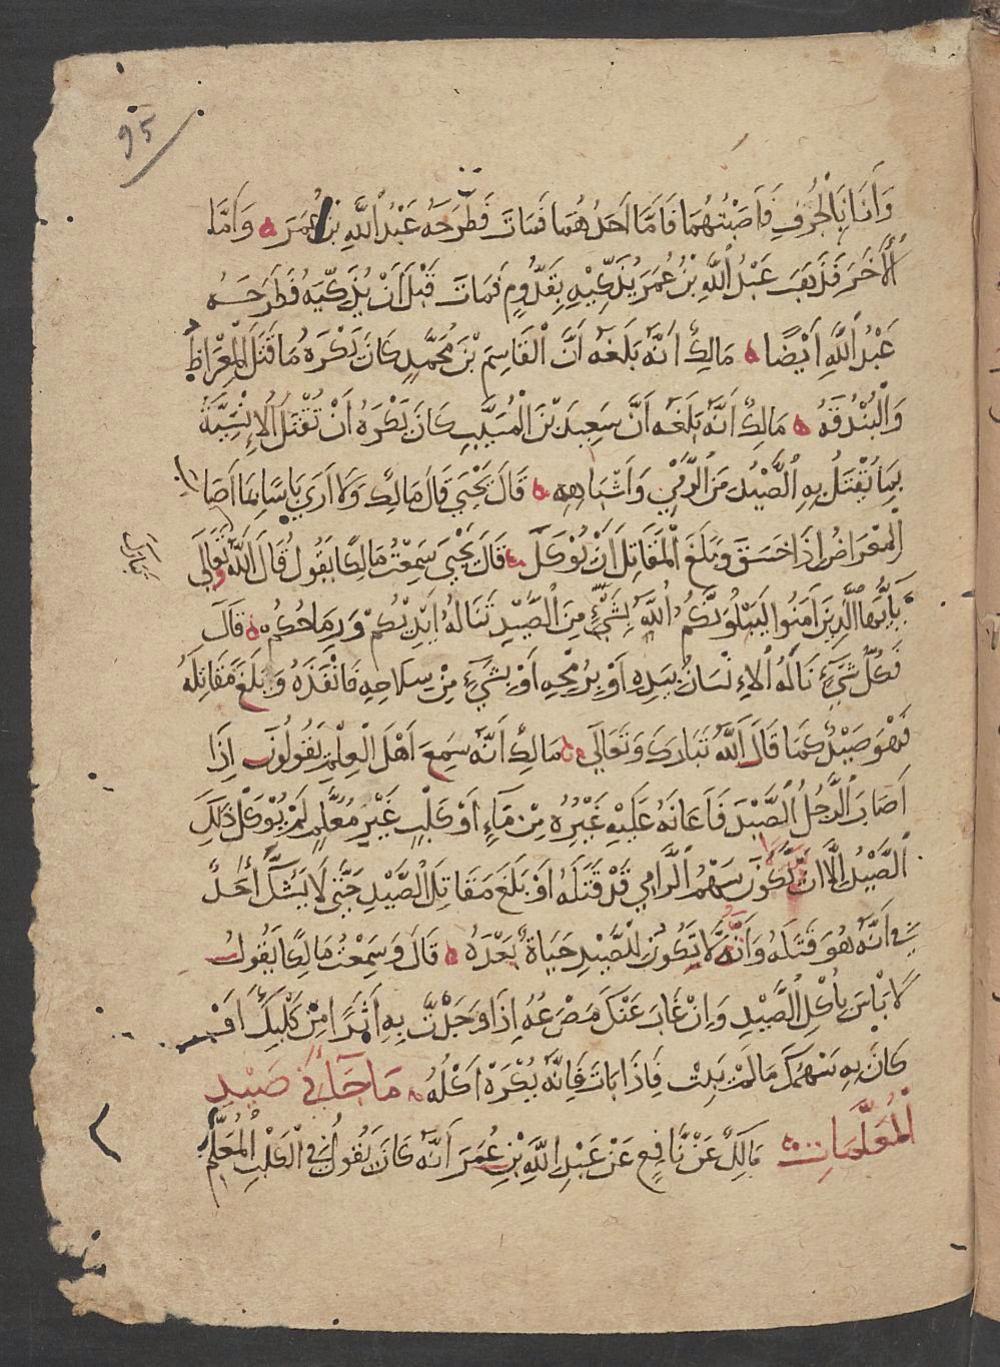 95
وَأَنَا بِالْجُرُفِ فَأَصَبْتُهُمَا فَأَمَّا أَحَدُهُمَا فَمَاتَ فَطَرَحَهُ عَبْدُ اللَّهِ بْنُ عُمَرَ ه وَأَمَّا
الْأَخَرُ فَذَهَبَ عَبْدُ اللَّهِ بْنُ عُمَرَ يُذَكِّيهِ بِقَدُّومٍ فَمَاتَ قَبْلَ أَنْ يُذَكِّيَهُ فَطَرَحَهُ
عَبْدُ اللَّهِ أَيْضًا ه مَالِكٌ أَنَّهُ بَلَغَهُ أَنَّ الْقَاسِمَ بْنَ مُحَمَّدٍ كَانَ يَكْرَهُ مَا قَتَلَ الْمِعْرَاضُ
وَالْبُنْدُقَةُ ه مَالِكٌ أَنَّهُ بَلَغَهُ أَنَّ سَعِيدَ بْنَ الْمُسَيَّبِ كَانَ يَكْرَهُ أَنْ تُقْتَلَ الْإِنْسِيَّةُ
بِمَا يُقْتَلُ بِهِ الصَّيْدُ مِنَ الرَّمْيِ وَأَشْبَاهِهِ ه قَالَ يَحْيَى قَالَ مَالِكٌ وَلَا أَرَى بَأْسًا بِمَا أَصَابَ
الْمِعْرَاضُ إِذَا خَسَقَ وَبَلَغَ الْمَقَاتِلَ أَنْ يُوكَلَ ه قَالَ يَحْيَى سَمِعْتُ مَالِكًا يَقُولُ قَالَ اللَّهُ وَتَعَالَى
تبارك
يَأَيُّهَا الَّذِينَ آمَنُوا لَيَبْلُوَنَّكُمُ اللَّهُ بِشَيْءٍ مِنَ الصَّيْدِ تَنَالُهُ أَيْدِيكُمْ وَرِمَاحُكُمْ ه قَالَ
فَكُلُّ شَيْءٍ نَالَهُ الْإِنْسَانُ بِيَدِهِ أَوْ بِرُمْحِهِ أَوْ بِشَيْءٍ مِنْ سِلَاحِهِ فَأَنْفَذَهُ وَبَلَغَ مَقَاتِلَهُ
فَهُوَ صَيْدٌ كَمَا قَالَ اللَّهُ تَبَارَكَ وَتَعَالَى ه مَالِكٌ أَنَّهُ سَمِعَ أَهْلَ الْعِلْمِ يَقُولُونَ إِذَا
أَصَابَ الرَّجُلُ الصَّيْدَ فَأَعَانَهُ عَلَيْهِ غَيْرُهُ مِنْ مَاءٍ أَوْ كَلْبٍ غَيْرِ مُعَلَّمٍ لَمْ يُوكَلْ ذَلِكَ
الصَّيْدُ إِلَّا أَنْ يَكُونَ سَهْمُ الرَّامِي قَدْ قَتَلَهُ أَوْ بَلَغَ مَقَاتِلَ الصَّيْدِ حَتَّى لَا يَشُكَّ أَحَدٌ
فِي أَنَّهُ هُوَ قَتَلَهُ وَأَنَّهُ لَا يَكُونُ لِلصَّيْدِ حَيَاةٌ بَعْدَهُ ه قَالَ وَسَمِعْتُ مَالِكًا يَقُولُ
لَا بَأْسَ بِأَكْلِ الصَّيْدِ وَإِنْ غَابَ عَنْكَ مَصْرَعُهُ إِذَا وَجَدْتَ بِهِ أَثَرًا مِنْ كَلْبِكَ أَوْ
كَانَ بِهِ سَهْمُكَ مَا لَمْ يَبِتْ فَإِذَا بَاتَ فَإِنَّهُ يُكْرَهُ أَكْلُهُ ه مَا جَاءَ فِي صَيْدِ
الْمُعَلَّمَاتِ ه مَالِكٌ عَنْ نَافِعٍ عَنْ عَبْدِ اللَّهِ بْنِ عُمَرَ أَنَّهُ كَانَ يَقُولُ فِي الْكَلْبِ الْمُعَلَّمِ